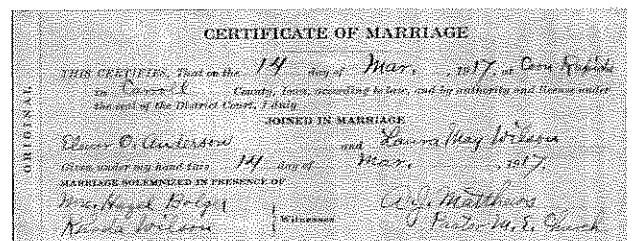 CERTIFICATE OF MARRIAGE
ORIGINAL
THIS CERTIFIES, That on the 14 day of Mar, 1917, at Coon Rapids
in Carroll County, Iowa, according to law, and by authority and license under
the seal of the District Court, I duly
JOINED IN MARRIAGE
Elmer O. Anderson and Laura May Wilson
Given under my hand this 14 day of Mar, 1917.
MARRIAGE SOLEMNIZED IN PRESENCE OF
Hazel W.J. Matthews
Wilson Witnesses Pastor M. E. Church